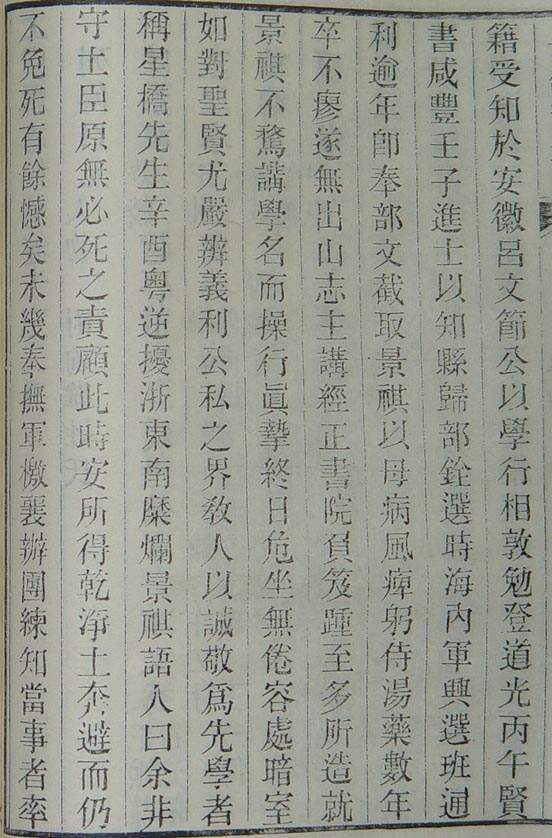 籍受知於安徽呂文節公以學行相敦勉登道光丙午賢
書咸豐壬子進士以知縣歸部銓選時海內軍興選班通
利逾年卽奉部文截取景祺以母病風痺躬侍湯藥數年
卒不瘳遂無出山志主講經正書院負笈踵至多所造就
景祺不騖講學名而操行眞摯終日危坐無倦容處暗室
如對聖賢尤嚴辨義利公私之界敎人以誠敬爲先學者
稱星橋先生辛酉粵逆擾浙東南糜爛景祺語人曰余非
守土臣原無必死之責顧此時安所得乾淨土奔避而仍
不免死有餘憾矣未幾奉撫軍檄襄辦團練知當事者率